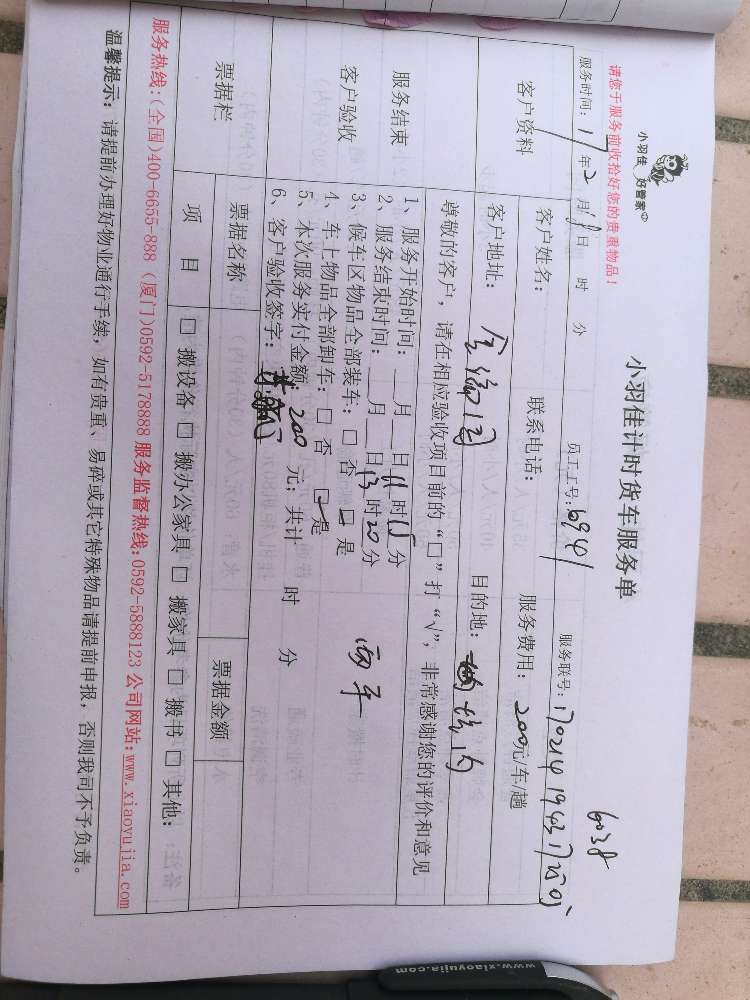 小羽佳 好管家
请您于服务前收拾好您的贵重物品！
小羽佳计时货车服务单
6038
服务时间：17年2月18日 时 分 员工工号：6941 服务联号：
客户资料
客户姓名： 联系电话： 服务费用：200元/车/趟
客户地址： 目的地：
服务结束
客户验收
尊敬的客户，请在相应验收项目前的“□”打“√”，非常感谢您的评价和意见
1、服务开始时间：__月__日11时15分
2、服务结束时间：__月__日13时20分
3、候车区物品全部装车：□ 否 □ 是
4、车上物品全部卸车：□ 否 □ 是
5、本次服务实付金额：200 元；共计 时 分
6、客户验收签字：
两车
票据栏
票据名称 票据金额
项 目 □ 搬设备 □ 搬办公家具 □ 搬家具 □ 搬书 □ 其他：
服务热线：(全国)400-6655-888 (厦门)0592-5178888 服务监督热线：0592-5888123 公司网站：www.xiaoyujia.com
温馨提示：请提前办理好物业通行手续，如有贵重、易碎或其它特殊物品请提前申报，否则我司不予负责。
www.xiaoyujia.com